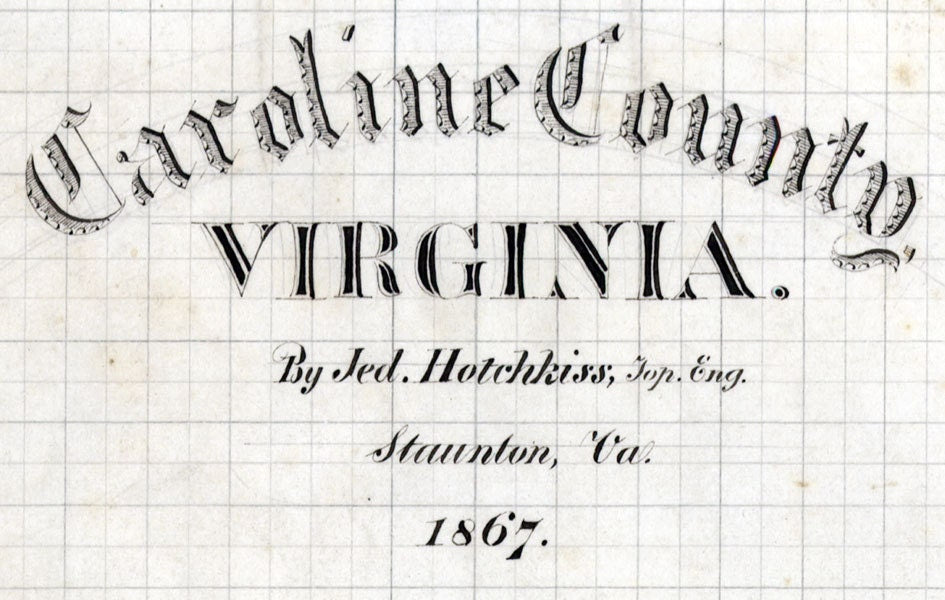 Caroline County,
VIRGINIA.
By Jed. Hotchkiss, Top. Eng.
Staunton, Va.
1867.